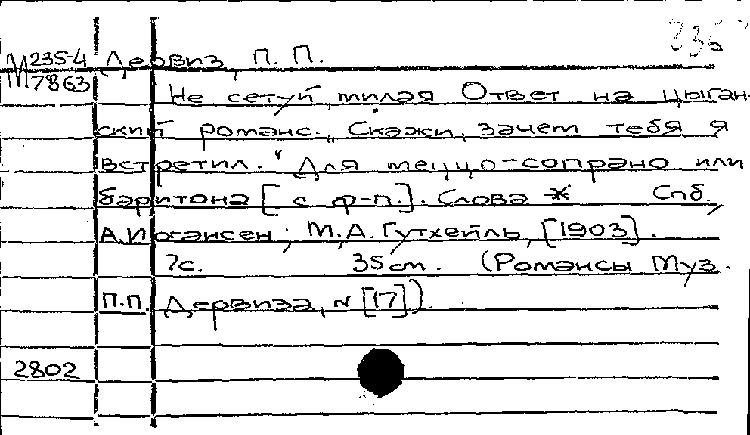 М 235-4 Дервиз, П. П.
7863
Не сетуй, милая Ответ на цыган-
ский романс „Скажи, зачем тебя я
встретил." Для меццо-сопрано или
баритона [с ф-п.]. Слова * Спб,
А. Иогансен; М.А. Гутхейль, [1903].
7с. 35 см. (Романсы Муз.
П.П. Дервиза, N [17])
2802